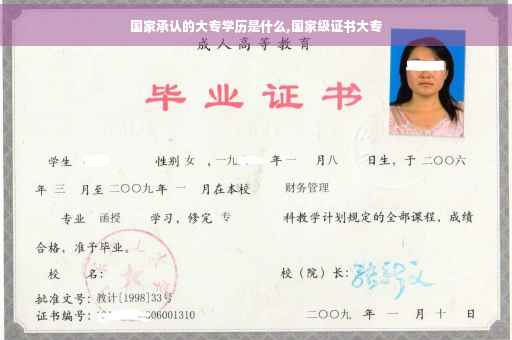 国家承认的大专学历是什么,国家级证书大专
成人高等教育
毕业证书
学生 性别 女 ,一九 年 一 月八 日生，于二〇〇六
年 三 月至二〇〇九年 一 月在本校 财务管理
专业 函授 学习，修完 专 科教学计划规定的全部课程，成绩
合格，准予毕业。
校 名： 校（院）长：
批准文号：教计[1998]33号
证书编号： 06001310 二〇〇九 年 一 月 十 日